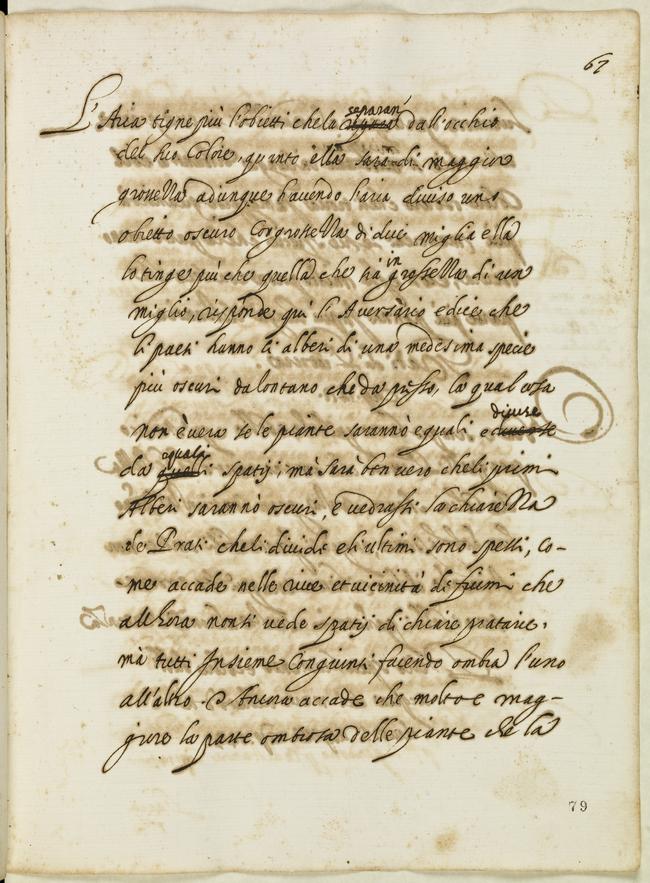 67
L'Aria tigne più l'obietti che la separan dall'occhio
del suo Colore, quanto ella sarà di maggior
grossezza adunque havendo l'aria diviso uno
obietto oscuro Con grossezza di duci miglia ella
lo tinge più che quella che hà in grossezza di un
miglio, risponde qui l'Aversario e dice che
li paesi hanno li alberi di una medesima specie
più oscuri da lontano che da presso, la qual cosa
non è vera se le piante sarannò equali e divise
da equali spatij, mà sarà ben vero che li primi
Alberi sarannò oscuri, e vedrassi la chiarezza
de Prati che li divide e li ultimi sono spessi, co-
-me accade nelle rive et vicinità di fiumi che
all'hora non si vede spatij di chiare pratarie,
mà tutti Insieme Congiunti facendo ombra l'uno
all'altro. Ancora accade che molto e mag-
giore la parte ombrosa delle piante che la
79